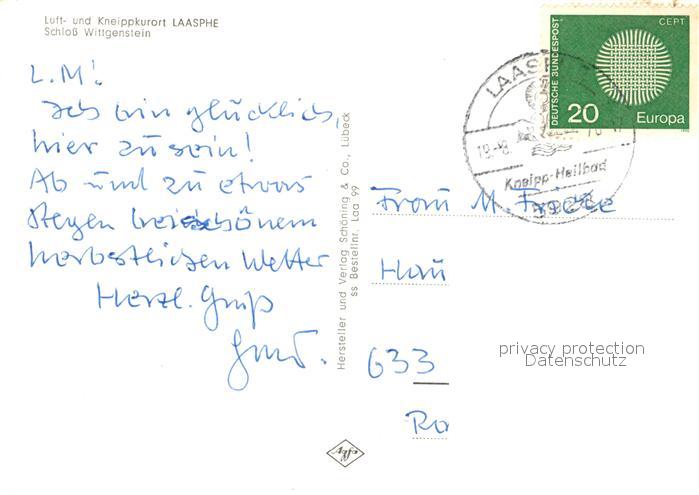 Luft- und Kneippkurort LAASPHE
Schloß Wittgenstein
L.M!
Ich bin glücklich,
hier zu sein!
Ab und zu etwas
Regen bei schönem
herbstlichen Wetter
Herzl. Gruß
Hersteller und Verlag Schöning & Co., Lübeck
ss Bestellnr. Laa 99
Agfa
DEUTSCHE BUNDESPOST
CEPT
20
Europa
LAASPHE
Kneipp-Heilbad
Frau M. Fricke
Hau
633
Ro
privacy protection
Datenschutz